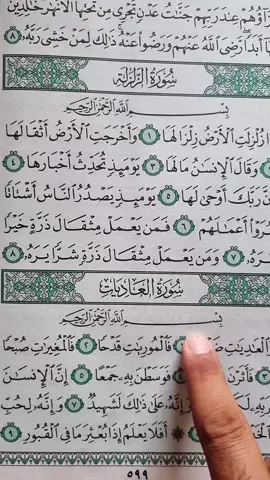 ؤُهُمْ عِندَ رَبِّهِمْ جَنَّاتُ عَدْنٍ تَجْرِي مِن تَحْتِهَا الْأَنْهَارُ خَالِدِينَ
أَبَدًا رَّضِيَ اللَّهُ عَنْهُمْ وَرَضُوا عَنْهُ ذَٰلِكَ لِمَنْ خَشِيَ رَبَّهُ ٨
سُورَةُ الزَّلْزَلَةِ
بِسْمِ اللَّهِ الرَّحْمَٰنِ الرَّحِيمِ
زُلْزِلَتِ الْأَرْضُ زِلْزَالَهَا ١ وَأَخْرَجَتِ الْأَرْضُ أَثْقَالَهَا
وَقَالَ الْإِنسَانُ مَا لَهَا ٣ يَوْمَئِذٍ تُحَدِّثُ أَخْبَارَهَا ٤
رَبَّكَ أَوْحَىٰ لَهَا ٥ يَوْمَئِذٍ يَصْدُرُ النَّاسُ أَشْتَاتًا
رَوْا أَعْمَالَهُمْ ٦ فَمَن يَعْمَلْ مِثْقَالَ ذَرَّةٍ خَيْرًا
رَهُ ٧ وَمَن يَعْمَلْ مِثْقَالَ ذَرَّةٍ شَرًّا يَرَهُ ٨
سُورَةُ الْعَادِيَاتِ
بِسْمِ اللَّهِ الرَّحْمَٰنِ الرَّحِيمِ
الْعَادِيَاتِ فَالْمُورِيَاتِ قَدْحًا ٢ فَالْمُغِيرَاتِ صُبْحًا
فَأَثَرْنَ فَوَسَطْنَ بِهِ جَمْعًا ٥ إِنَّ الْإِنسَانَ
بِّهِ وَإِنَّهُ عَلَىٰ ذَٰلِكَ لَشَهِيدٌ ٧ وَإِنَّهُ لِحُبِّ
أَفَلَا يَعْلَمُ إِذَا بُعْثِرَ مَا فِي الْقُبُورِ ٩
٥٩٩